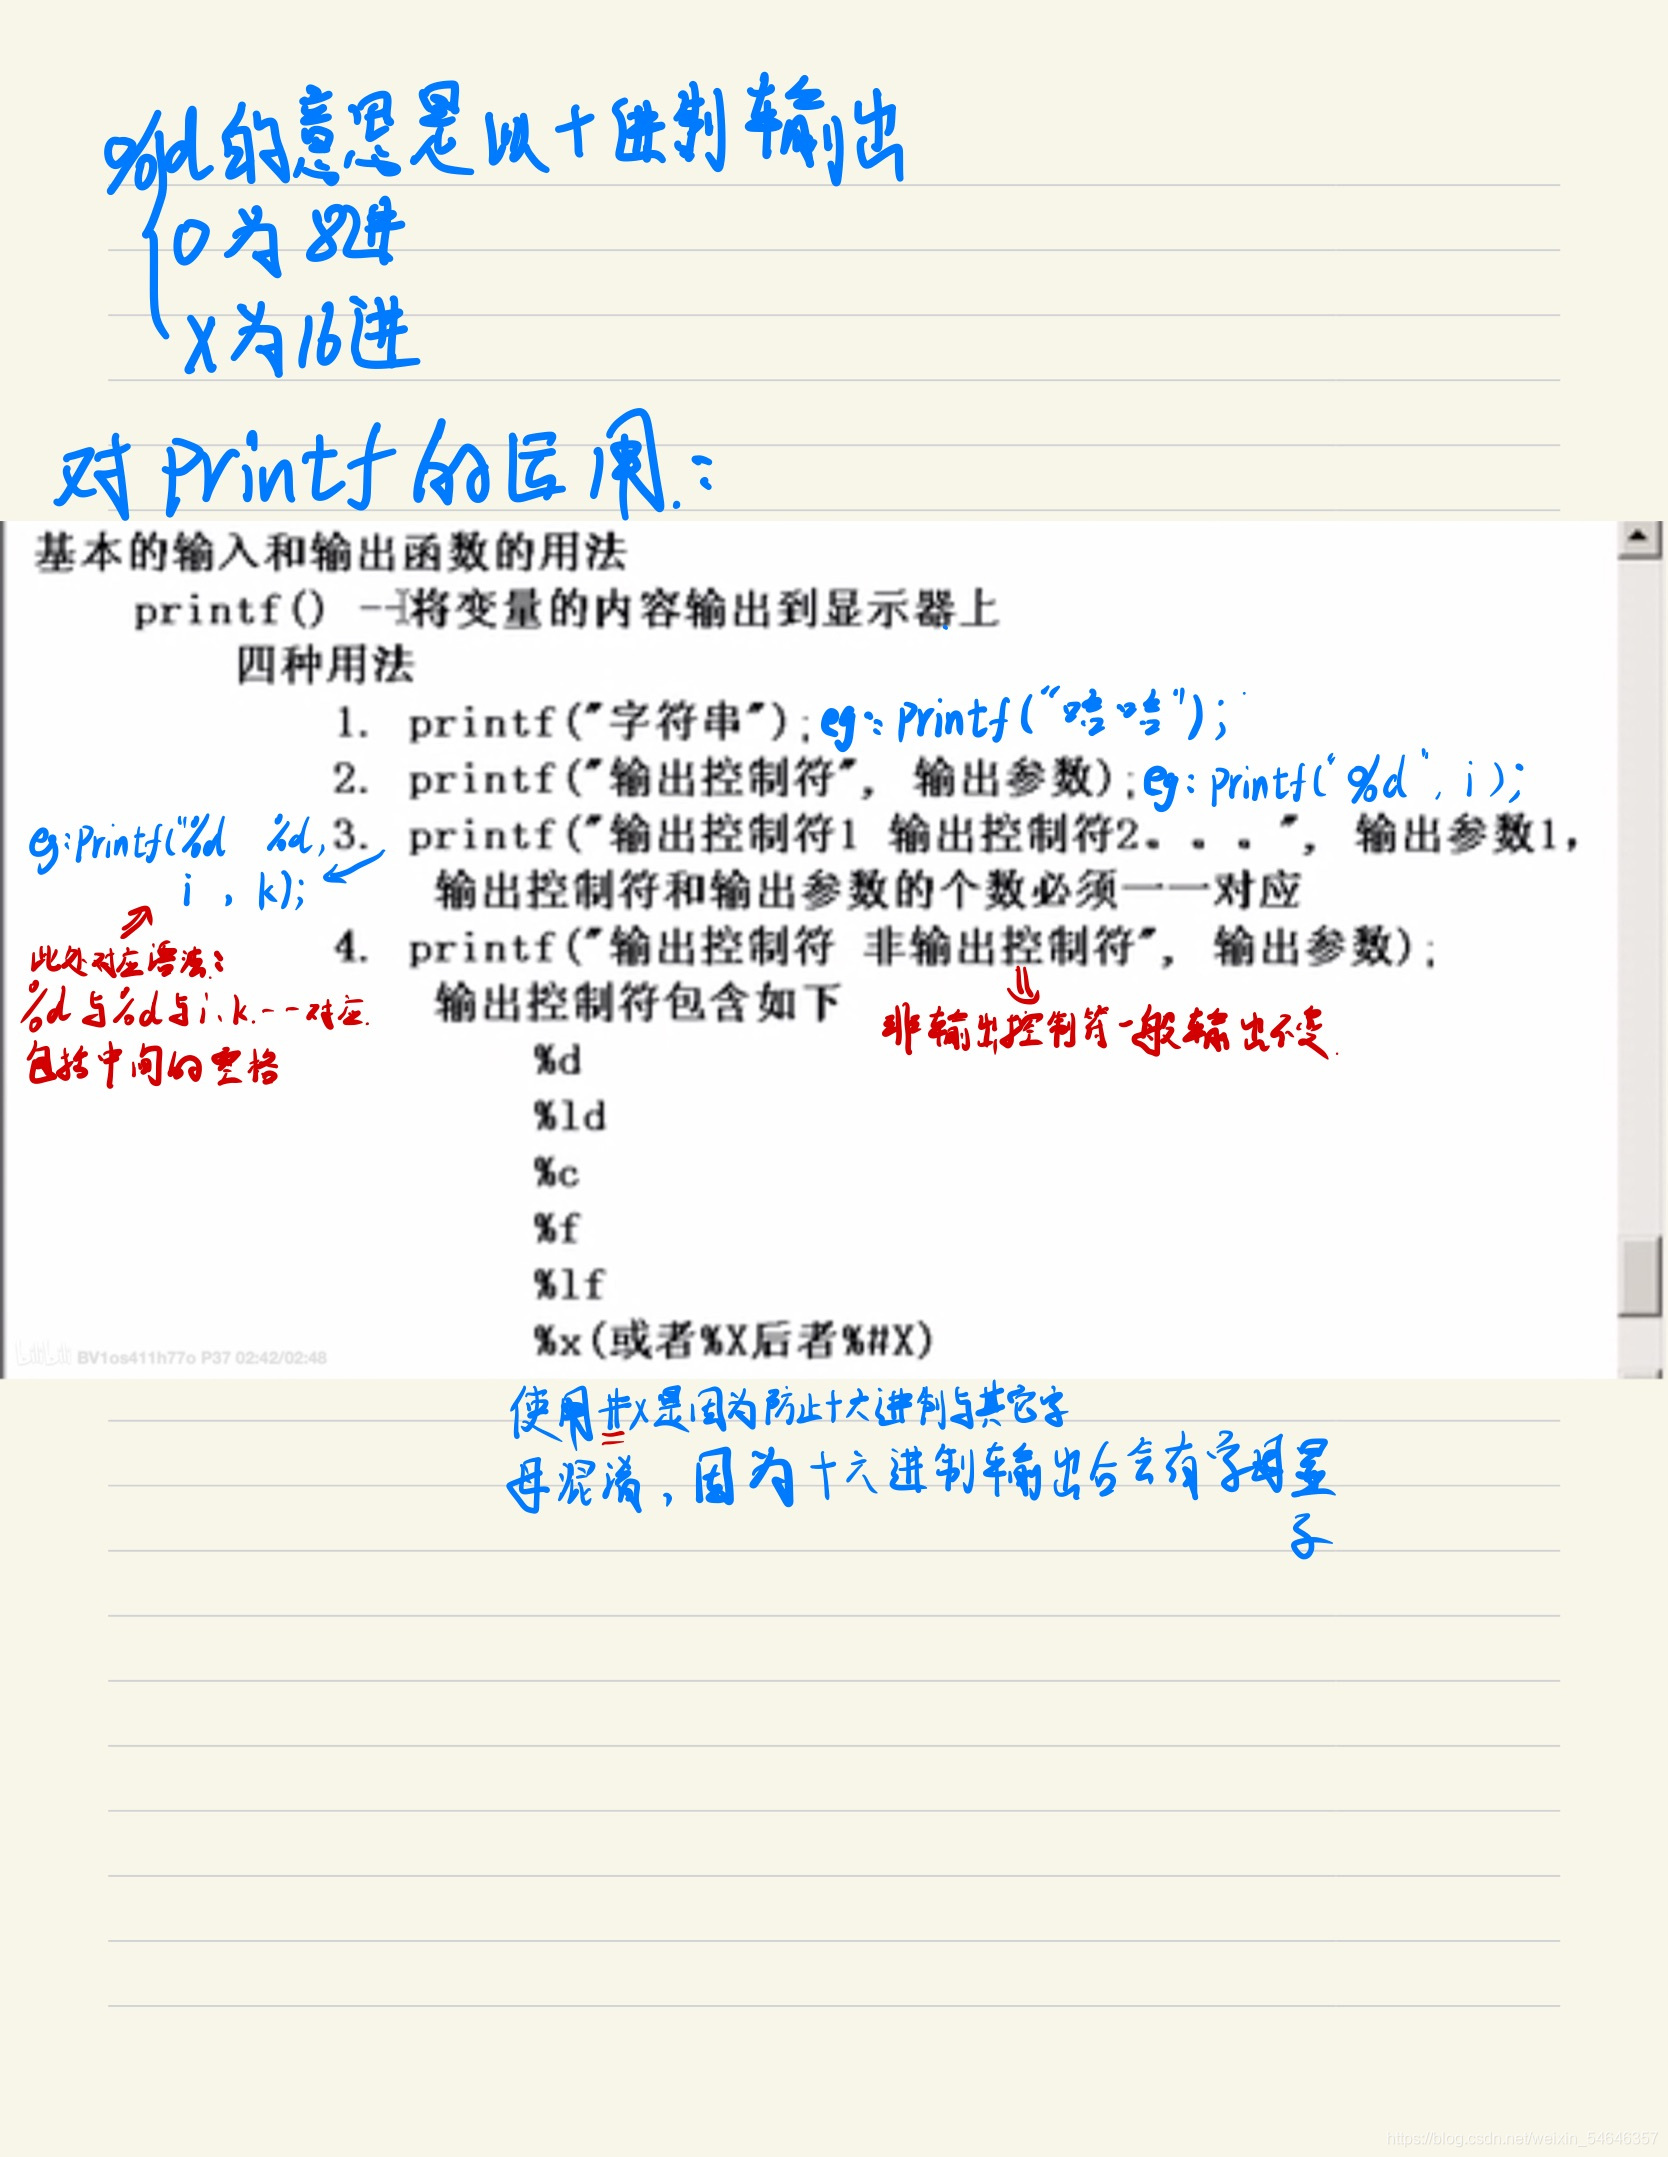 %d的意思是以十进制输出
o为8进
x为16进
对printf的运用:
基本的输入和输出函数的用法
printf() --将变量的内容输出到显示器上
四种用法
1. printf("字符串"); eg: printf("哈哈");
2. printf("输出控制符", 输出参数); eg: printf("%d", i);
3. printf("输出控制符1 输出控制符2。。。", 输出参数1,
eg:Printf("%d %d,
i , k);
输出控制符和输出参数的个数必须一一对应
4. printf("输出控制符 非输出控制符", 输出参数);
此处对应语法:
%d与%d与i、k.一一对应.
包括中间的空格
输出控制符包含如下
非输出控制符一般输出不变.
%d
%ld
%c
%f
%lf
%x(或者%X后者%#X)
bilibili BV1os411h77o P37 02:42/02:48
使用#X是因为防止十六进制与其它字
母混淆,因为十六进制输出后会有字母显
示
https://blog.csdn.net/weixin_54646357